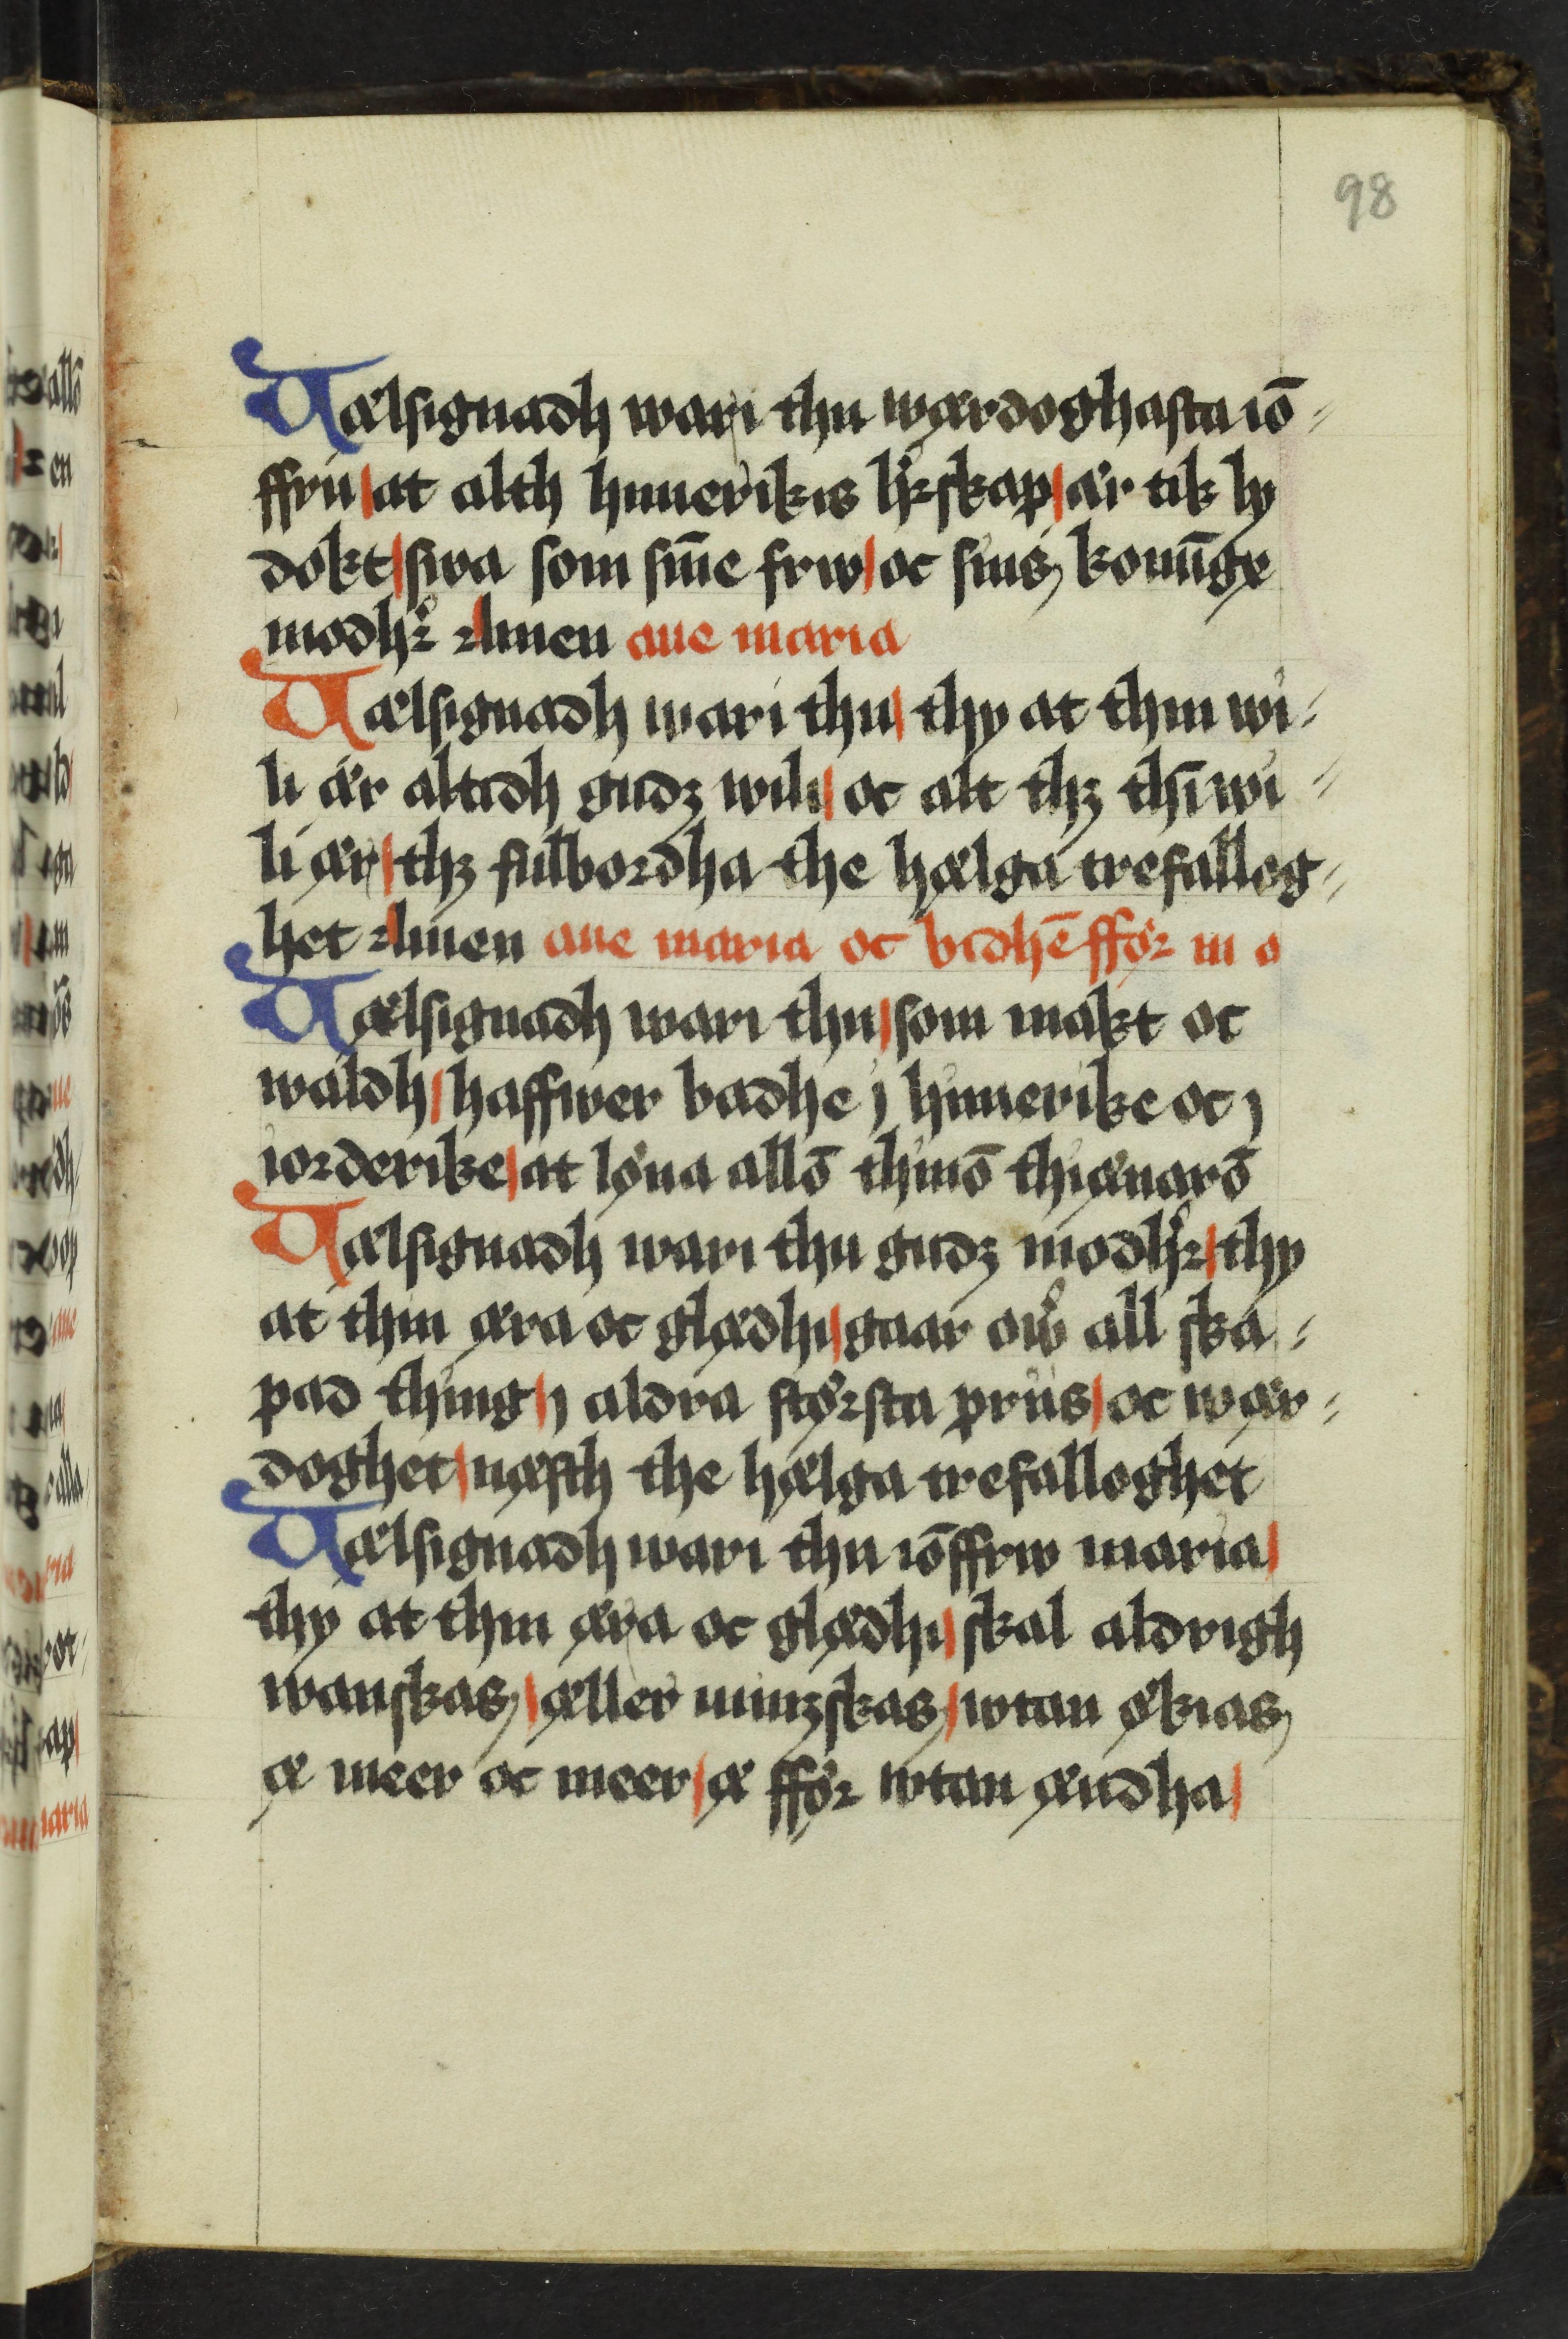 98
Uælsignadh wari thu wærdoghasta iō-
ffru at alth himerikis h̊rskap ær tik ly
dokt swa som sin̄e frw oc sins konūgx
modhꝛ̊ Amen aue maria
Uælsignadh wari thu thy at thin wi-
li ær altidh gudz wili oc alt thz thī wi-
li ær thz fulbordha the hælga trefalleg-
het Amen aue maria oc bidhē ffør m o
Uælsignadh wari thu som makt oc
waldh haffwer badhe j himerike oc j
iorderike at løna allō thinō thiænarō
Uælsignadh wari thu gudz modh̊ꝛ thy
at thin æra oc glædhi gaar oẘ all ska-
pad thing j aldra størsta priis oc wær-
doghet næsth the hælga trefalloghet
Uælsignadh wari thu iōffrw maria
thy at thin æra oc glædhi skal aldrigh
wanskas æller minzskas wtan økias
æ meer oc meer æ ffør wtan ændha